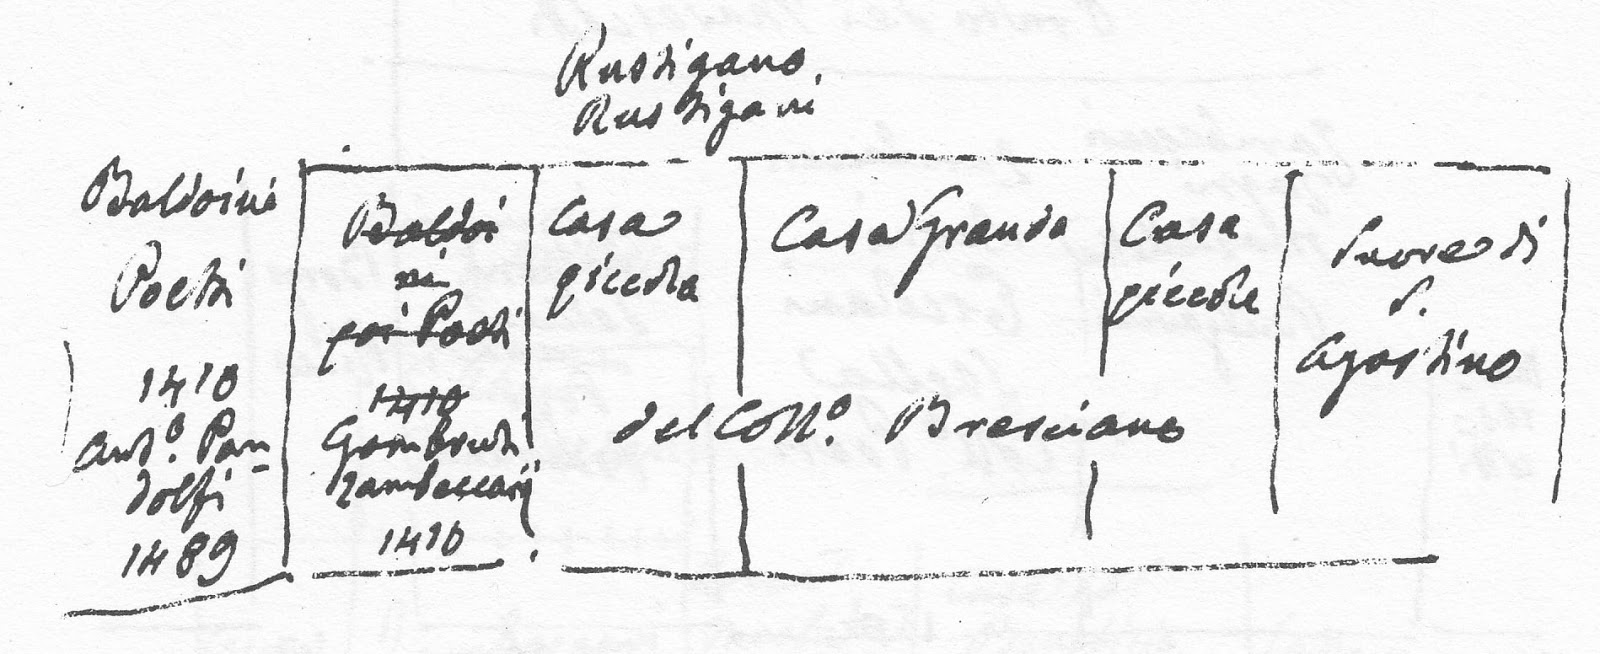 Rustigano.
Rustigani
Baldoini
Poeti
1410
Ant.º Pan-
dolfi
1489
Baldoi
ni
poi Poeti
1410
Gombruti
Zambeccarij
1410
Casa
piccola
Casa Grande
Casa
piccola
del Coll.º Bresciano
Suore di
S.
Agostino